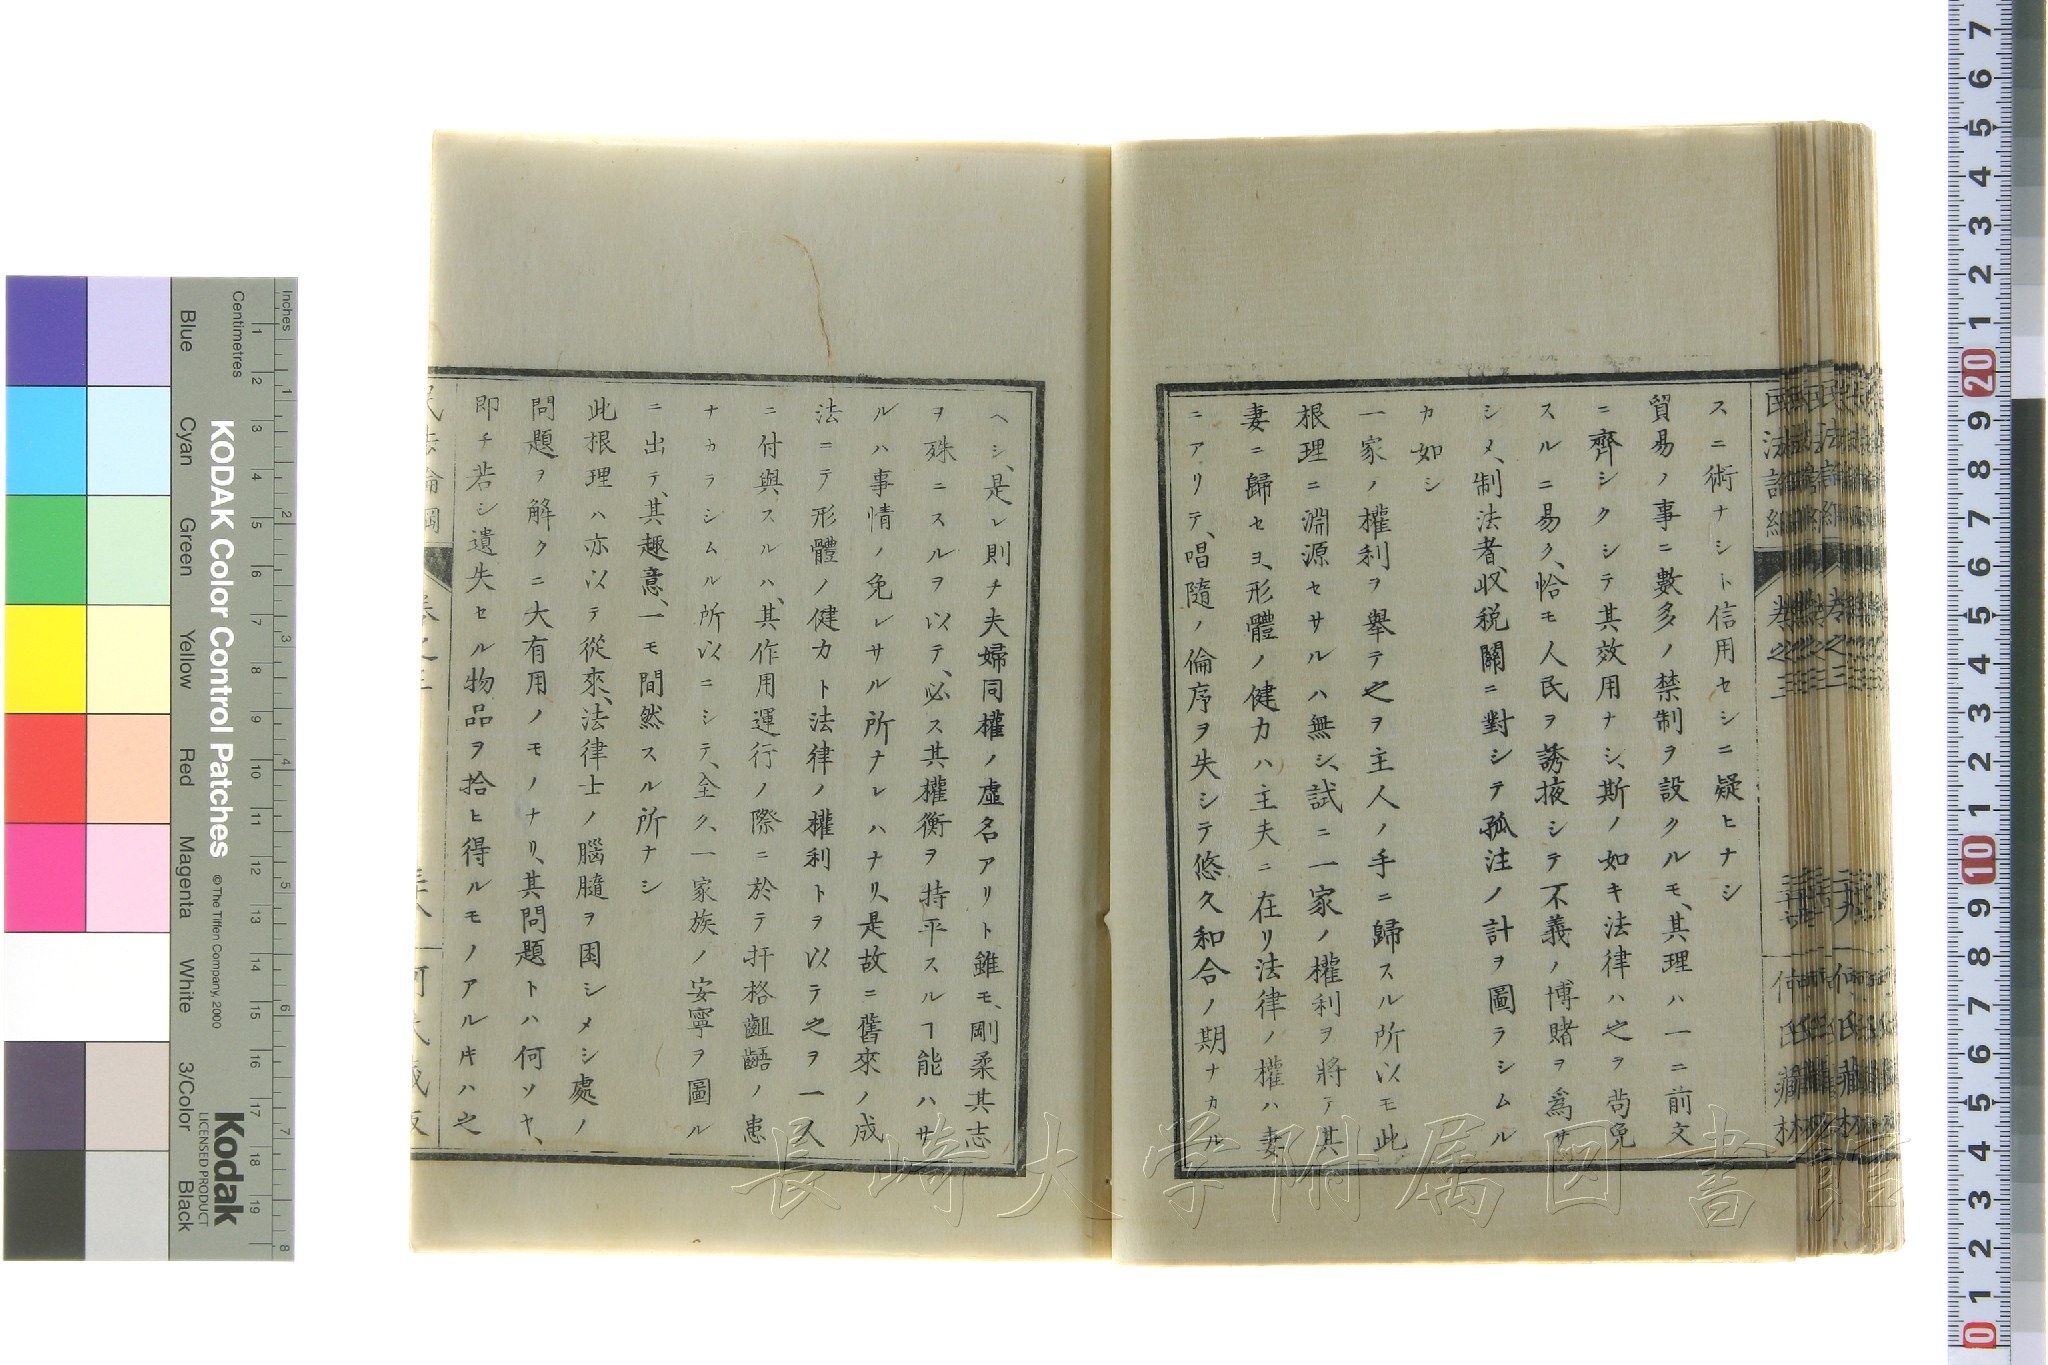 スニ術ナシト信用セシニ疑ヒナシ
貿易ノ事ニ數多ノ禁制ヲ設クルモ、其理ハ一ニ前文
ニ齊シクシテ其效用ナシ、斯ノ如キ法律ハ之ヲ尚免
スルニ易ク、恰モ人民ヲ誘掖シテ不義ノ博賭ヲ爲サ
シメ、制法者、收税關ニ對シテ孤注ノ計ヲ圖ラシムル
カ如シ
一家ノ權利ヲ擧テ之ヲ主人ノ手ニ歸スル所以モ此
根理ニ淵源セサルハ無シ、試ニ一家ノ權利ヲ將テ其
妻ニ歸セヨ、形體ノ健力ハ主夫ニ在リ法律ノ權ハ妻
ニアリテ、唱隨ノ倫序ヲ失シテ悠久和合ノ期ナカル
ヘシ、是レ則チ夫婦同權ノ虛名アリト雖モ、剛柔其志
ヲ殊ニスルヲ以テ、必ス其權衡ヲ持平スルヿ能ハサ
ルハ事情ノ免レサル所ナレハナリ、是故ニ舊來ノ成
法ニテ形體ノ健力ト法律ノ權利トヲ以テ之ヲ一人
ニ付與スルハ、其作用運行ノ際ニ於テ扞格齟齬ノ患
ナカラシムル所以ニシテ、全ク、一家族ノ安寧ヲ圖ル
ニ出テ、其趣意、一モ間然スル所ナシ
此根理ハ亦以テ從來、法律士ノ腦髓ヲ困シメシ處ノ
問題ヲ解クニ大有用ノモノナリ、其問題トハ何ソヤ、
即チ若シ遺失セル物品ヲ拾ヒ得ルモノアルキハ之
民法論綱 卷之三 何氏藏版
長崎大学附属図書館
KODAK Color Control Patches
© The Tiffen Company, 2000
Kodak
LICENSED PRODUCT
Inches
Centimetres
Blue
Cyan
Green
Yellow
Red
Magenta
White
3/Color
Black